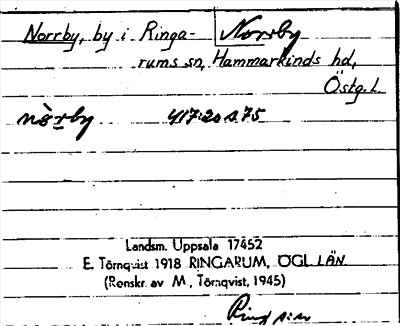 Norrby, by i Ringa- Norrby
rums sn, Hammarkinds hd,
Östg. L.
nòrby 417:20 s. 75
Landsm. Uppsala 17452
E. Törnqvist 1918 RINGARUM, ÖGL. LÄN
(Renskr. av M. Törnqvist, 1945)